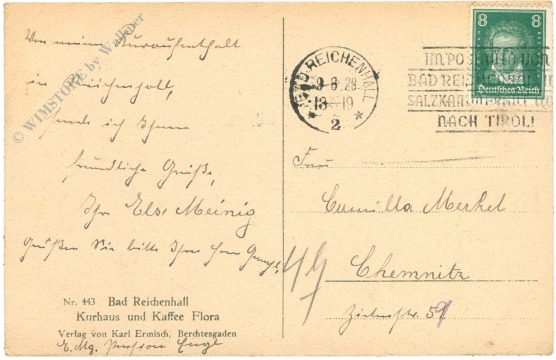 Von meinem Kuraufenthalt
in Reichenhall,
ich Ihnen
freundliche Grüße,
Ihr Else Meinig
Grüßen Sie bitte Ihren
Nr. 443 Bad Reichenhall
Kurhaus und Kaffee Flora
Verlag von Karl Ermisch, Berchtesgaden
© WIMSTORE by Wallner
BAD REICHENHALL
9 8.28
18-19
* 2 *
8 8
Deutsches Reich
IM POSTAUTO VON
BAD REICHENHALL
NACH TIROL!
Frau
Camilla Merkel
Chemnitz